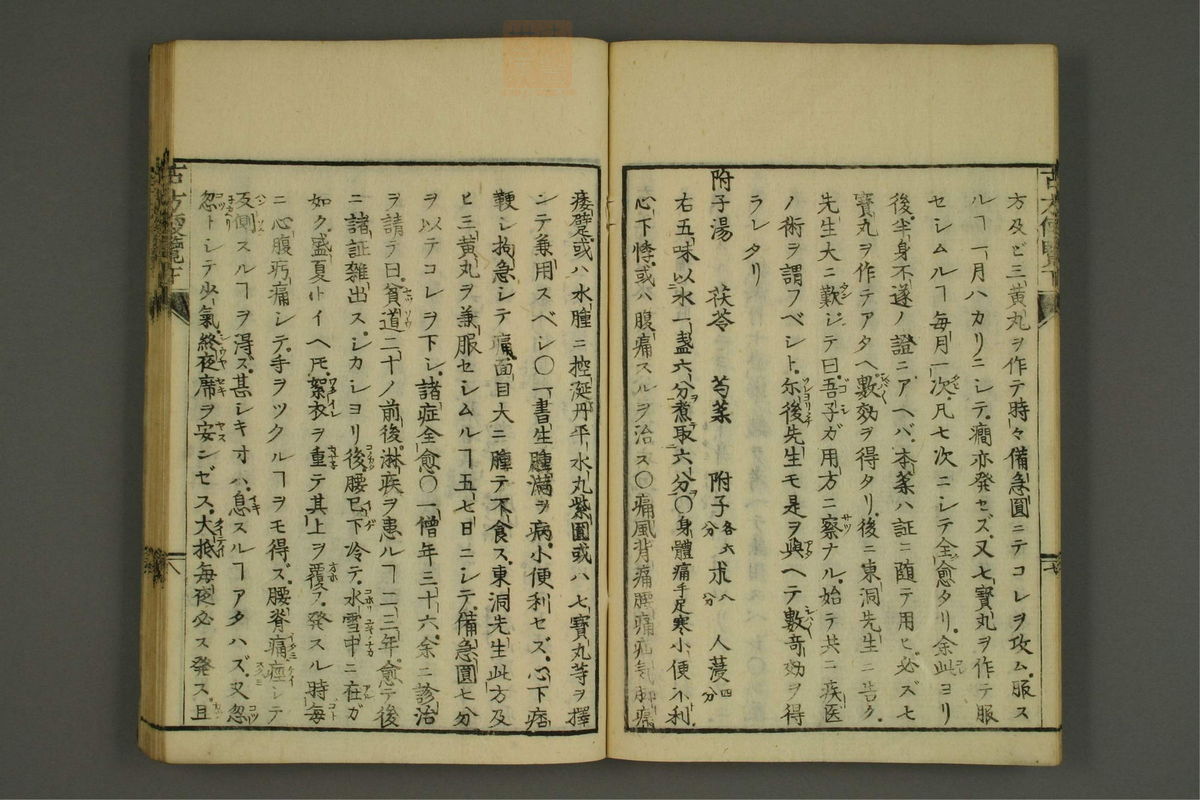 方及ビ三黄丸ヲ作テ時々備急圓ニテコレヲ攻ム服ス
ルヿ一月ハカリニシテ癇亦発セズ又七寳丸ヲ作テ服
セシムルヿ毎月一次凡七次ニシテ全愈タリ余此ヨリ
後半身不遂ノ證ニアヘバ本薬ハ証ニ随テ用ヒ必ズ七
寳丸ヲ作テアタヘ數効ヲ得タリ後ニ東洞先生ニ告ク
先生大ニ歎ジテ曰吾子ガ用方ニ察ナル始テ共ニ疾医
ノ術ヲ謂フベシト尓後先生モ是ヲ與ヘテ數奇効ヲ得
ラレタリ
附子湯 茯苓 芍薬 附子各六分 朮八分 人蓡四分
右五味以水一盞六分煮取六分〇身體痛手足寒小便不利
心下悸或ハ腹痛スルヲ治ス〇痛風背痛腰痛疝気脚
痿躄或ハ水腫ニ控涎丹平水丸紫圓或ハ七寳丸等ヲ擇
ンテ兼用スベシ〇一書生腫満ヲ病小便利セズ心下痞
鞕シ拘急シテ痛面目大ニ腫テ不食ス東洞先生此方及
ヒ三黄丸ヲ兼服セシムルヿ五七日ニシテ備急圓七分
ヲ以テコレヲ下シ諸症全愈〇一僧年三十六余ニ診治
ヲ請テ曰貧道二十ノ前後淋疾ヲ患ルヿ二三年愈テ後
ニ諸証雑出スシカシヨリ後腰已下冷テ水雪中ニ在ガ
如ク盛夏トイヘ𪜈絮衣ヲ重テ其上ヲ覆フ発スル時毎
ニ心腹㽲痛シテ手ヲツクルヿヲモ得ズ腰脊痛痙シテ
反側スルヿヲ淂ズ甚シキオハ息スルヿアタハズ又忽
忽トシテ少氣終夜席ヲ安ンゼス大抵毎夜必ス発ス且